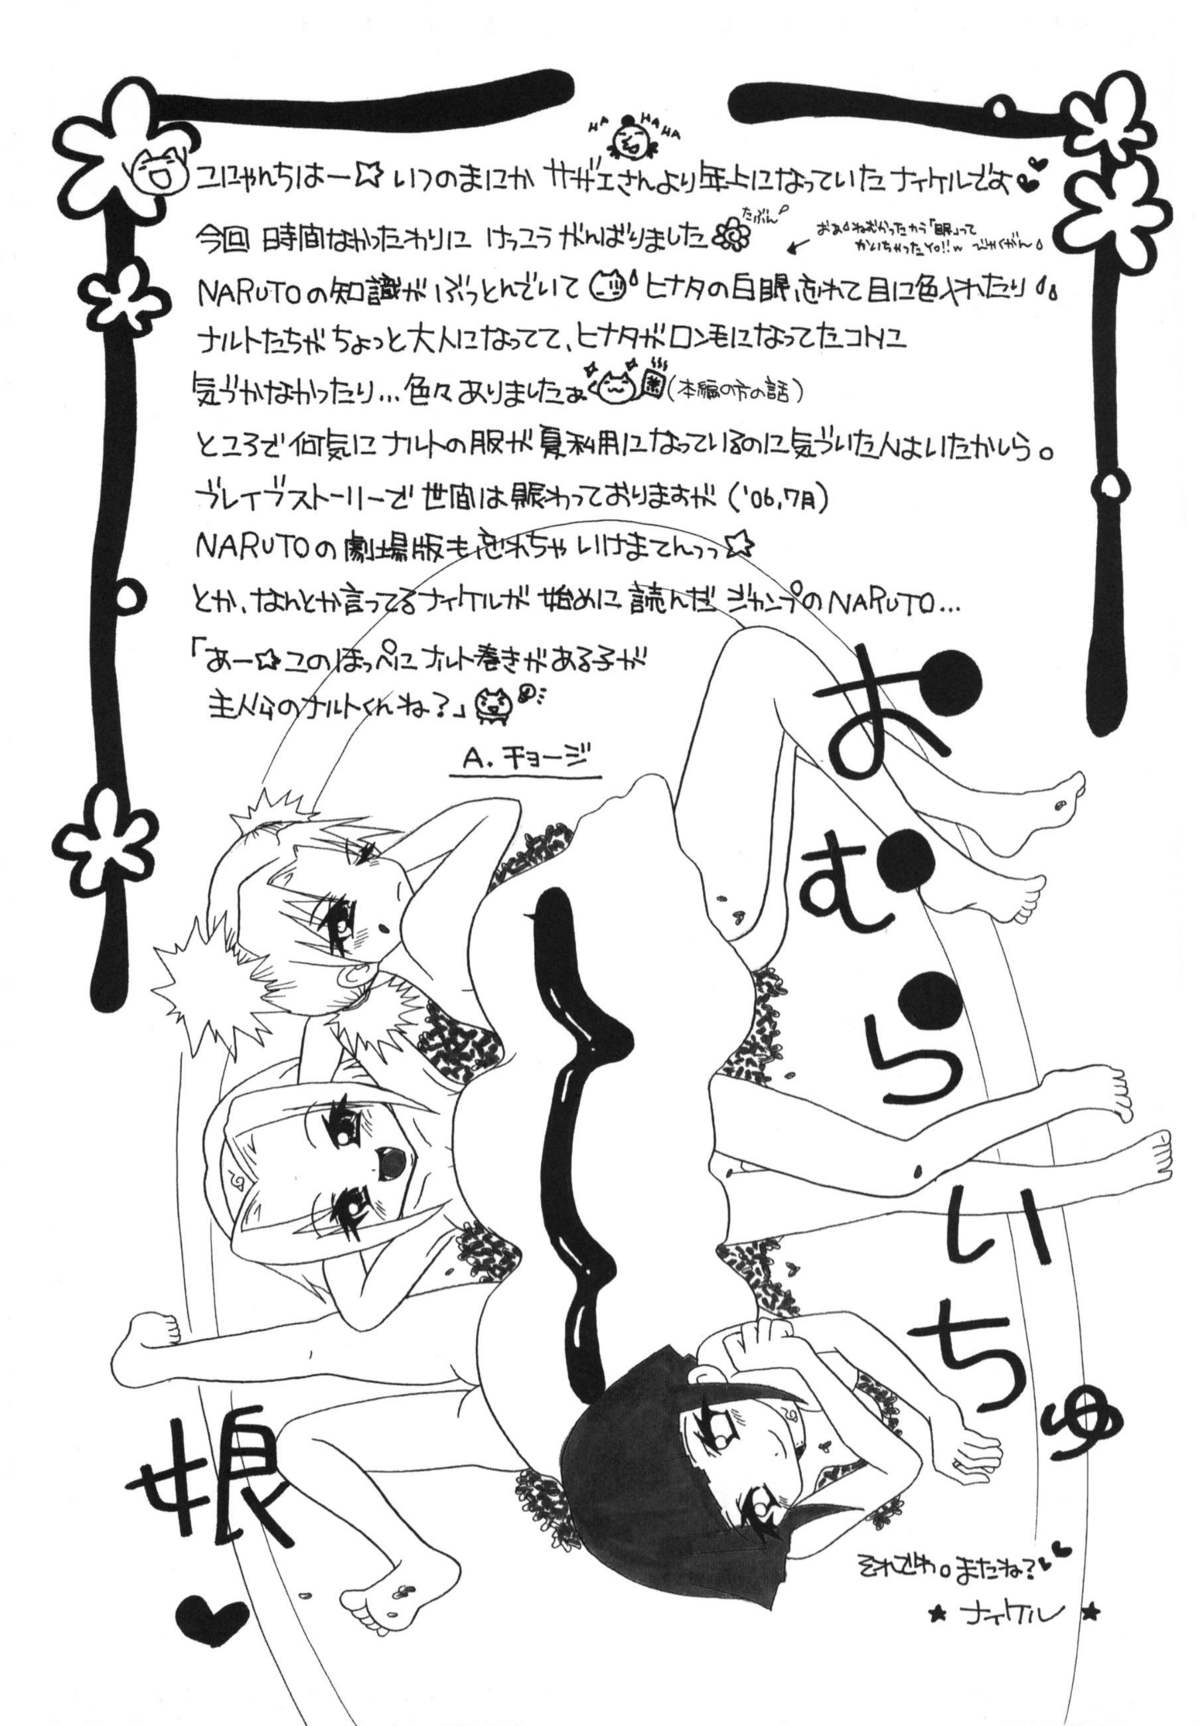 HA HA HA
こにゃんちはー☆いつのまにか サザエさんより年上になっていたナイケルです♥
今回 時間なかったわりに けっこうがんばりました
たぶん
おぁねむかったから「眼」って
かいちゃったYO!!w びゃくがん
NARUTOの知識がぶっとんでいて ヒナタの白眼忘れて目に色入れたり
ナルトたちがちょっと大人になってて、ヒナタがロン毛になってたコトに
気づかなかったり…色々ありましたぁ(本編の方の話)
ところで何気にナルトの服が夏利用になっているのに気づいた人はいたかしら。
ブレイブストーリーで世間は賑わっておりますが('06,7月)
NARUTOの劇場版も忘れちゃいけまてんっっ☆
とか、なんとか言ってるナイケルが 始めに 読んだ ジャンプのNARUTO…
「あー☆このほっぺにナルト巻きがある子が
主人公のナルトくんね?」
A. チョージ
おむらいちゅ
娘
♥
それでわ。またね?♥♥
★ ナイケル ★